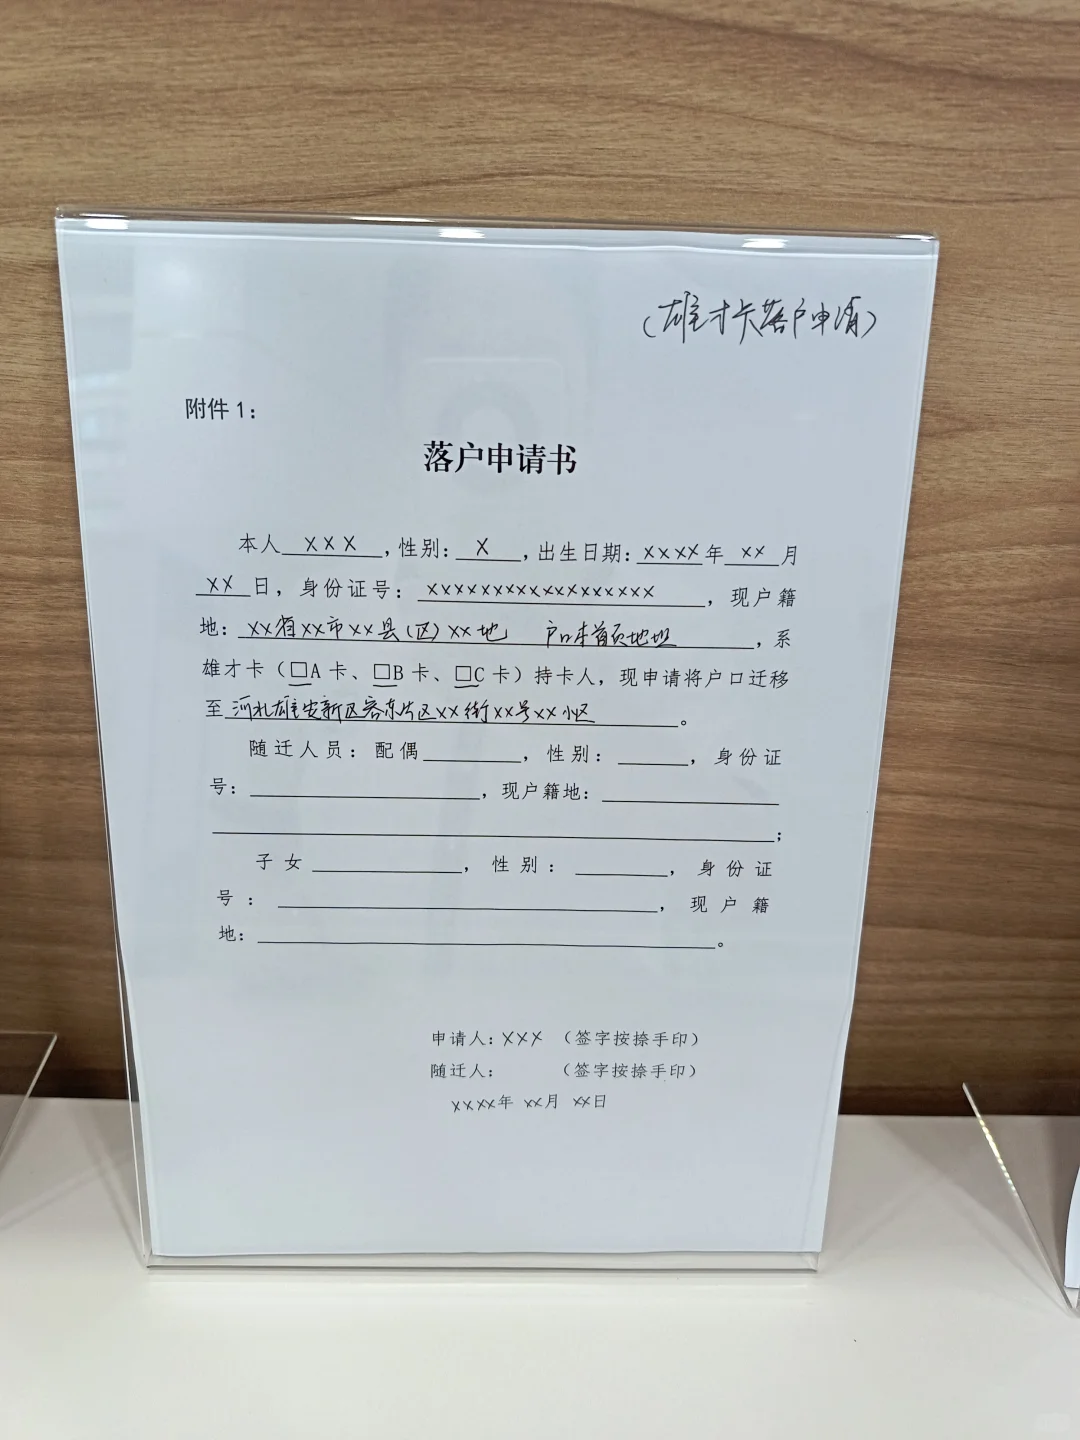 （雄才卡落户申请）
附件1：
落户申请书
本人XXX，性别：X，出生日期：XXXX年XX月
XX日，身份证号：XXXXXXXXXXXXXXXXXX，现户籍
地：XX省XX市XX县(区)XX地 户口本首页地址，系
雄才卡（□A卡、□B卡、□C卡）持卡人，现申请将户口迁移
至河北雄安新区容东片区XX街XX号XX小区。
随迁人员：配偶________，性别：______，身份证
号：____________________，现户籍地：______________
________________________________________；
子女____________，性别：________，身份证
号：______________________________，现户籍
地：____________________________________。
申请人：XXX（签字按捺手印）
随迁人：（签字按捺手印）
XXXX年XX月XX日